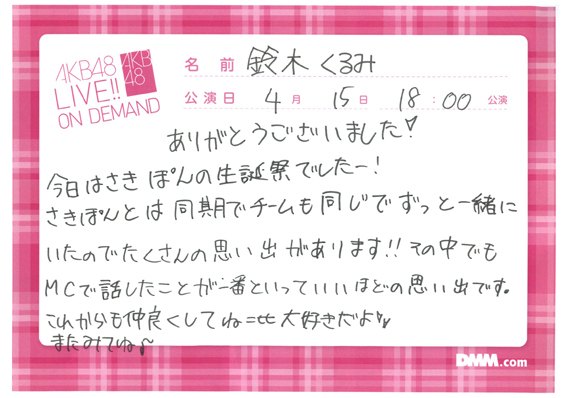 AKB48
LIVE!!
ON DEMAND
AKB
48
名前 鈴木くるみ
公演日 4月 15日 18:00 公演
ありがとうございました!
今日はさきぽんの生誕祭でしたー!
さきぽんとは同期でチームも同じでずっと一緒に
いたのでたくさんの思い出があります!!その中でも
MCで話したことが一番といっていいほどの思い出です。
これからも仲良くしてね 大好きだよ
またみてね♪
DMM.com